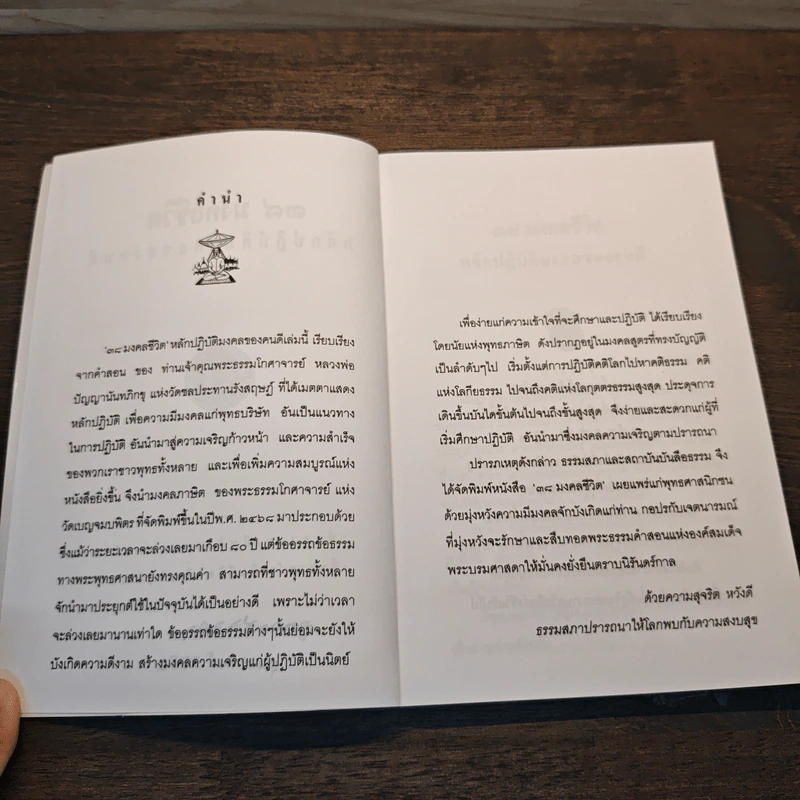 คำนำ
'๓๘ มงคลชีวิต' หลักปฏิบัติมงคลของคนดีเล่มนี้ เรียบเรียง
จากคำสอน ของ ท่านเจ้าคุณพระธรรมโกศาจารย์ หลวงพ่อ
ปัญญานันทภิกขุ แห่งวัดชลประทานรังสฤษฎ์ ที่ได้เมตตาแสดง
หลักปฏิบัติ เพื่อความมีมงคลแก่พุทธบริษัท อันเป็นแนวทาง
ในการปฏิบัติ อันนำมาสู่ความเจริญก้าวหน้า และความสำเร็จ
ของพวกเราชาวพุทธทั้งหลาย และเพื่อเพิ่มความสมบูรณ์แห่ง
หนังสือยิ่งขึ้น จึงนำมงคลภาษิต ของพระธรรมโกศาจารย์ แห่ง
วัดเบญจมบพิตร ที่จัดพิมพ์ขึ้นในปีพ.ศ. ๒๔๖๘ มาประกอบด้วย
ซึ่งแม้ว่าระยะเวลาจะล่วงเลยมาเกือบ ๘๐ ปี แต่ข้ออรรถข้อธรรม
ทางพระพุทธศาสนายังทรงคุณค่า สามารถที่ชาวพุทธทั้งหลาย
จักนำมาประยุกต์ใช้ในปัจจุบันได้เป็นอย่างดี เพราะไม่ว่าเวลา
จะล่วงเลยมานานเท่าใด ข้ออรรถข้อธรรมต่างๆนั้นย่อมจะยังให้
บังเกิดความดีงาม สร้างมงคลความเจริญแก่ผู้ปฏิบัติเป็นนิตย์
เพื่อง่ายแก่ความเข้าใจที่จะศึกษาและปฏิบัติ ได้เรียบเรียง
โดยนัยแห่งพุทธภาษิต ดังปรากฏอยู่ในมงคลสูตรที่ทรงบัญญัติ
เป็นลำดับๆไป เริ่มตั้งแต่การปฏิบัติคติโลกไปหาคติธรรม คติ
แห่งโลกียธรรม ไปจนถึงคติแห่งโลกุตตรธรรมสูงสุด ประดุจการ
เดินขึ้นบันไดขั้นต้นไปจนถึงขั้นสูงสุด จึงง่ายและสะดวกแก่ผู้ที่
เริ่มศึกษาปฏิบัติ อันนำมาซึ่งมงคลความเจริญตามปรารถนา
ปรารภเหตุดังกล่าว ธรรมสภาและสถาบันบันลือธรรม จึง
ได้จัดพิมพ์หนังสือ '๓๘ มงคลชีวิต' เผยแพร่แก่พุทธศาสนิกชน
ด้วยมุ่งหวังความมีมงคลจักบังเกิดแก่ท่าน กอปรกับเจตนารมณ์
ที่มุ่งหวังจะรักษาและสืบทอดพระธรรมคำสอนแห่งองค์สมเด็จ
พระบรมศาสดาให้มั่นคงยั่งยืนตราบนิรันดร์กาล
ด้วยความสุจริต หวังดี
ธรรมสภาปรารถนาให้โลกพบกับความสงบสุข